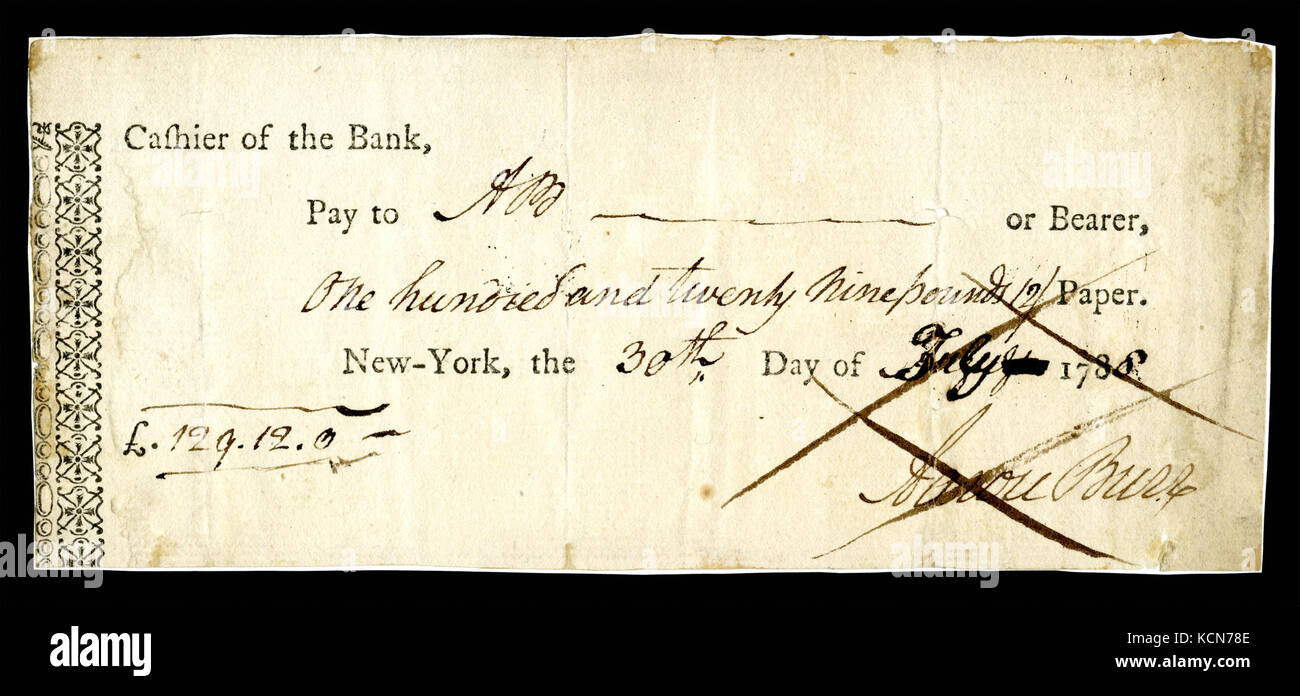 Caſhier of the Bank,
Pay to AB or Bearer,
One hundred and twenty Nine pounds 12/ Paper.
New-York, the 30th. Day of July 1788
£. 129.12.0
Aaron Burr
alamy
alamy
alamy
alamy
a
a
alamy
Image ID: KCN78E
www.alamy.com